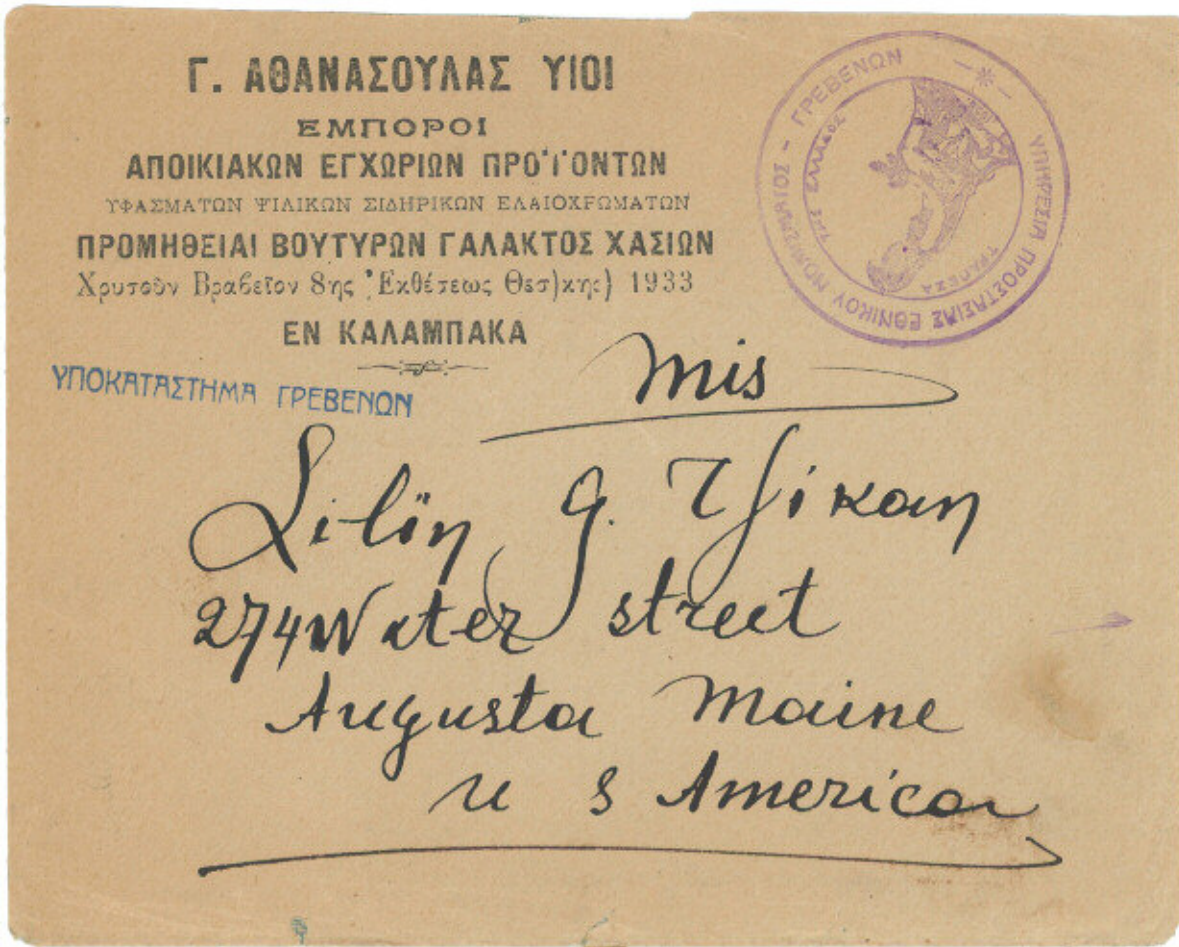 Γ. ΑΘΑΝΑΣΟΥΛΑΣ ΥΙΟΙ
ΕΜΠΟΡΟΙ
ΑΠΟΙΚΙΑΚΩΝ ΕΓΧΩΡΙΩΝ ΠΡΟΪΟΝΤΩΝ
ΥΦΑΣΜΑΤΩΝ ΨΙΛΙΚΩΝ ΣΙΔΗΡΙΚΩΝ ΕΛΑΙΟΧΡΩΜΑΤΩΝ
ΠΡΟΜΗΘΕΙΑΙ ΒΟΥΤΥΡΩΝ ΓΑΛΑΚΤΟΣ ΧΑΣΙΩΝ
Χρυσοῦν Βραβεῖον 8ης Ἐκθέσεως Θεσ)κης) 1933
ΕΝ ΚΑΛΑΜΠΑΚΑ
ΥΠΟΚΑΤΑΣΤΗΜΑ ΓΡΕΒΕΝΩΝ
ΥΠΗΡΕΣΙΑ ΠΡΟΣΤΑΣΙΑΣ ΕΘΝΙΚΟΥ ΝΟΜΙΣΜΑΤΟΣ - ΓΡΕΒΕΝΩΝ - * -
ΤΡΑΠΕΖΑ ΤΗΣ ΕΛΛΑΔΟΣ
mis
Lilïη G. Τζίκαη
274 Water street
Augusta Maine
u s America